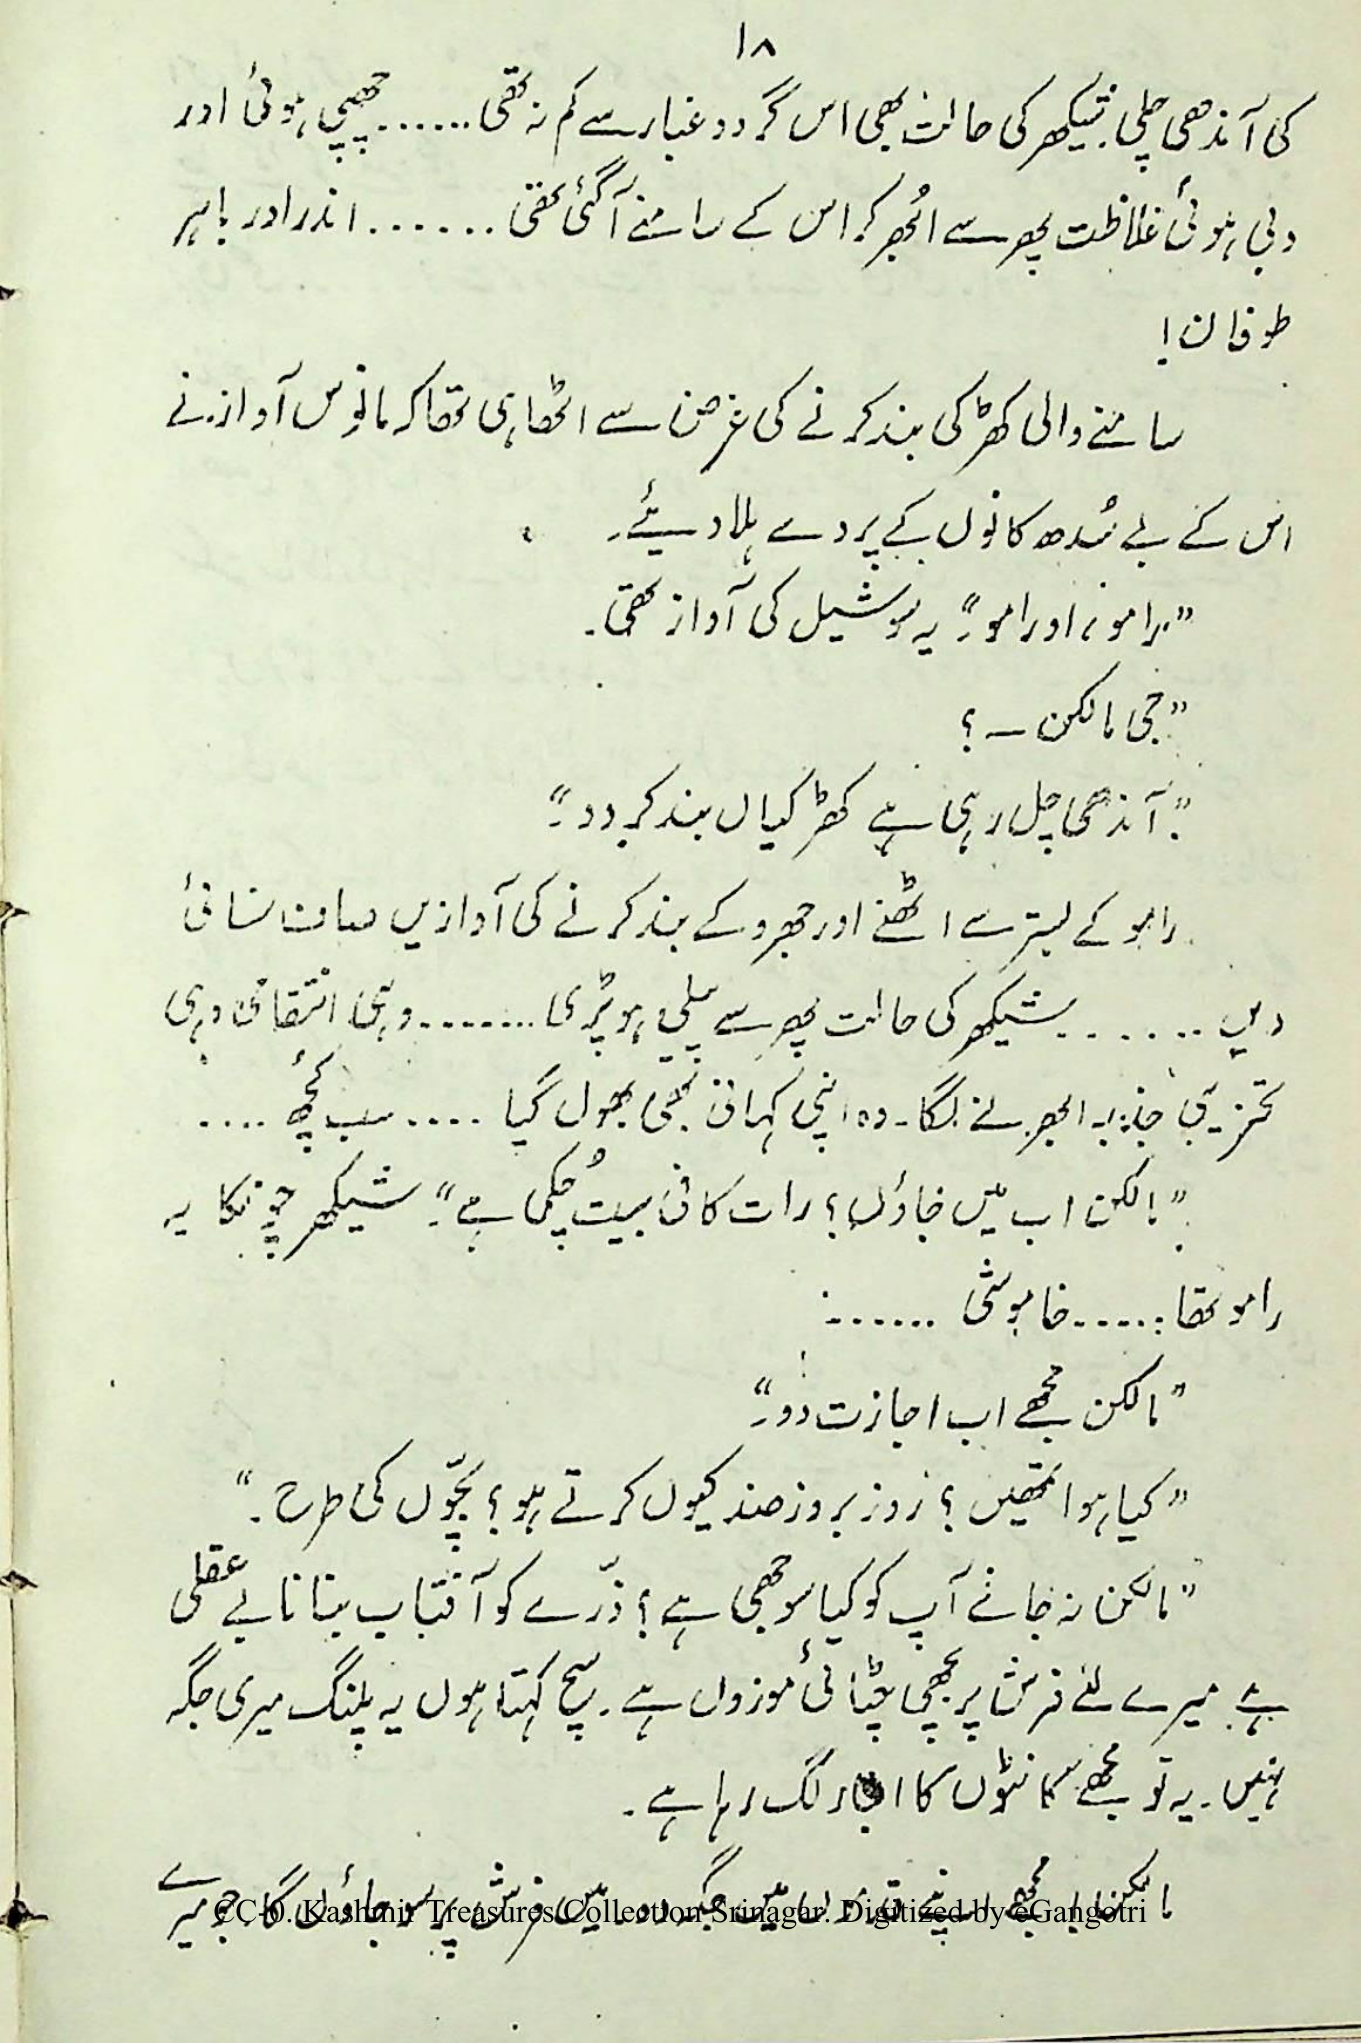 ۱۸
کی آندھی چلی۔ شیکھر کی حالت بھی اس گرد و غبار سے کم نہ تھی ...... چھپی ہوئی اور
دبی ہوئی غلاظت پھر سے اُبھر کر اس کے سامنے آگئی تھی ...... اندر اور باہر
طوفان!
سامنے والی کھڑکی بند کرنے کی غرض سے اٹھا ہی تھا کہ مانوس آواز نے
اس کے بے سُدھ کانوں کے پردے ہلا دیئے۔
”رامو، او رامو۔“ یہ سوشیل کی آواز تھی۔
”جی مالکن — ؟
”آندھی چل رہی ہے کھڑکیاں بند کر دو۔“
رامو کے بستر سے اٹھنے اور جھروکے بند کرنے کی آوازیں صاف سنائی
دیں ...... شیکھر کی حالت پھر سے پتلی ہو پڑی ....... وہی انتقامی وہی
تخریبی جذبہ ابھرنے لگا۔ وہ اپنی کہانی بھی بھول گیا .... سب کچھ ....
”مالکن اب میں جاؤں؟ رات کافی بیت چُکی ہے۔“ شیکھر چونکا یہ
رامو تھا ...... خاموشی ......
”مالکن مجھے اب اجازت دو۔“
”کیا ہوا تمھیں؟ روز بروز ضد کیوں کرتے ہو؟ بچّوں کی طرح۔“
”مالکن نہ جانے آپ کو کیا سوجھی ہے؟ ذرّے کو آفتاب بنانا بے عقلی
ہے۔ میرے لئے فرش پر بچھی چٹائی موزوں ہے۔ سچ کہتا ہوں یہ پلنگ میری جگہ
نہیں۔ یہ تو مجھے کانٹوں کا انبار لگ رہا ہے۔
مالکن! مجھے اپنے قدموں میں جگہ دو۔ میں فرش پر سو جاؤں گا۔ جو میرے
CC-0. Kashmir Treasures Collection Srinagar. Digitized by eGangotri